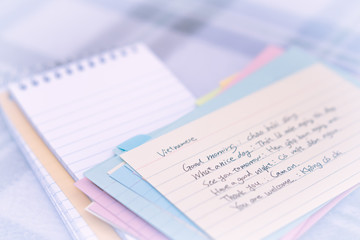 Vietnamese
Good morning : chào buổi sáng
What a nice day : Thật là một ngày
See you tomorrow : Hẹn gặp bạn ngày mai
Have a good night : Chúc một đêm ngon
Thank you : Cám ơn
You are welcome : Không có chi